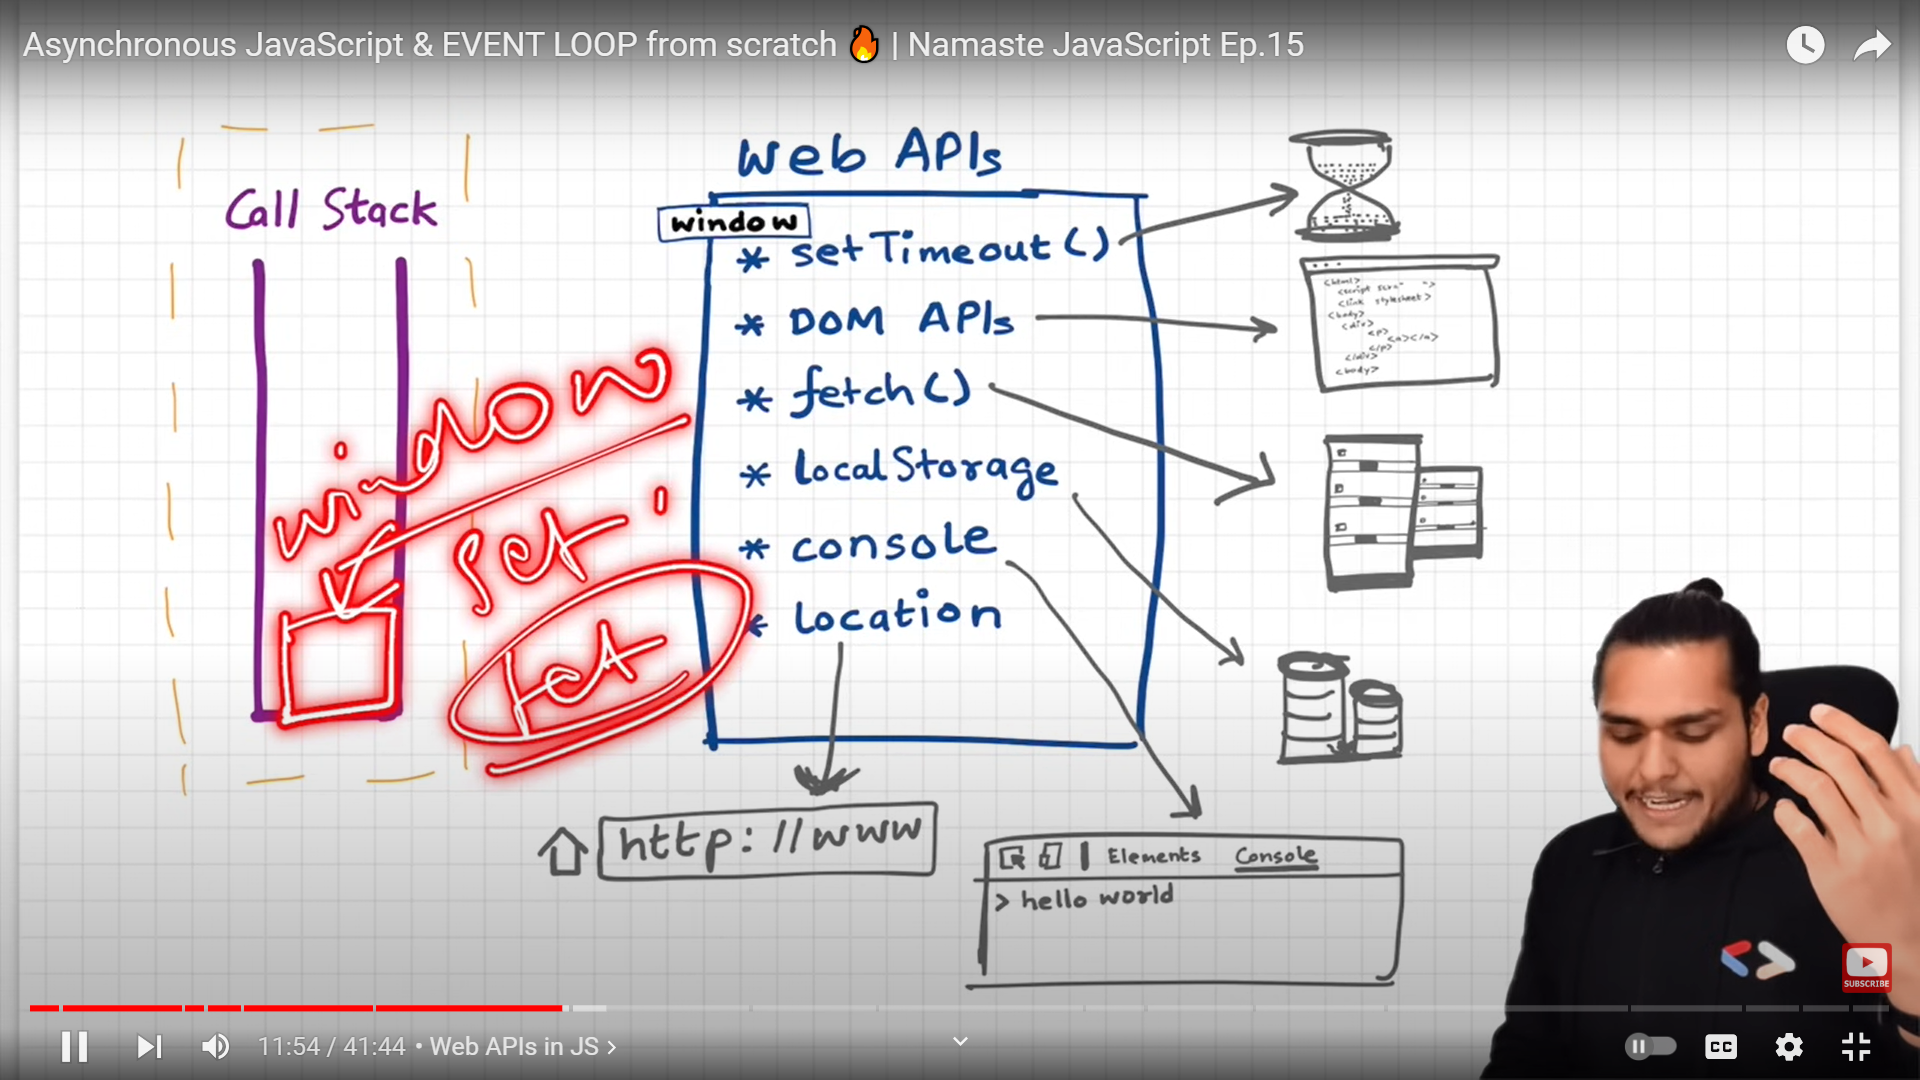 Asynchronous JavaScript & EVENT LOOP from scratch 🔥 | Namaste JavaScript Ep.15
Web APIs
Call Stack
window
* setTimeout()
* DOM APIs
* fetch()
* localStorage
* console
* location
window
set
fet
<html>
<link stylesheet>
<body>
<div>
<p>
<a></a>
</p>
</div>
<body>
http://www
Elements Console
> hello world
SUBSCRIBE
11:54 / 41:44 • Web APIs in JS >
CC